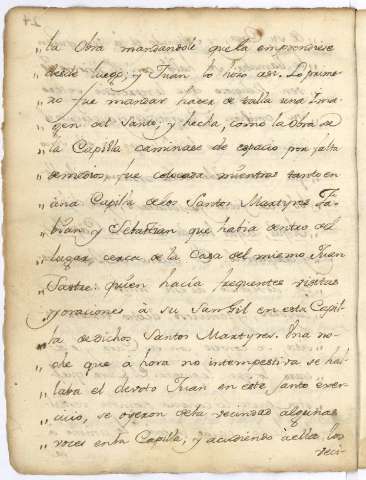 „ la Obra mandandole que la emprendiese
„ desde luego; y Juan lo hizo asi. Lo prime-
„ ro fue mandar hacer de talla una Ima-
„ gen del Santo; y hecha, como la obra de
„ la Capilla caminase de espacio por falta
„ de medios, fue colocada mientras tanto en
„ una Capilla de los Santos Martyres Fa-
„ bian y Sebastian que habia dentro del
„ lugar, cerca de la Casa del mismo Juan
„ Sastre: quien hacia frequentes visitas
„ y oraciones à su San Gil en esta Capil-
„ la de dichos Santos Martyres. Una no-
„ che que à hora no intempestiva se hal-
„ laba el devoto Juan en este santo exer-
„ cicio, se oyeron de la vecindad algunas
„ voces en la Capilla; y acudiendo à ella los
veci-